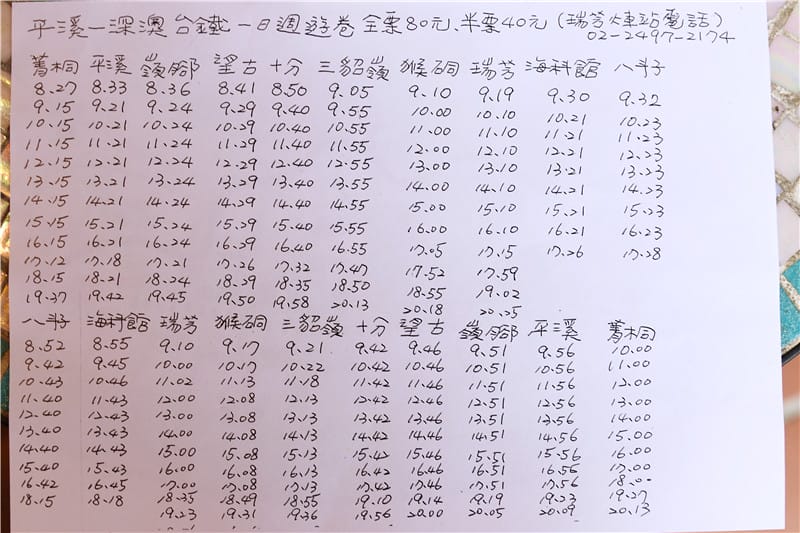 平溪一深澳台鐵一日週遊卷全票80元、半票40元(瑞芳火車站電話)
02-2497-2174
菁桐 平溪 嶺腳 望古 十分 三貂嶺 猴硐 瑞芳 海科館 八斗子
8.27 8.33 8.36 8.41 8.50 9.05 9.10 9.19 9.30 9.32
9.15 9.21 9.24 9.29 9.40 9.55 10.00 10.10 10.21 10.23
10.15 10.21 10.24 10.29 10.40 10.55 11.00 11.10 11.21 11.23
11.15 11.21 11.24 11.29 11.40 11.55 12.00 12.10 12.21 12.23
12.15 12.21 12.24 12.29 12.40 12.55 13.00 13.10 13.21 13.23
13.15 13.21 13.24 13.29 13.40 13.55 14.00 14.10 14.21 14.23
14.15 14.21 14.24 14.29 14.40 14.55 15.00 15.10 15.21 15.23
15.15 15.21 15.24 15.29 15.40 15.55 16.00 16.10 16.21 16.23
16.15 16.21 16.24 16.29 16.40 16.55 17.05 17.15 17.26 17.28
17.12 17.18 17.21 17.26 17.32 17.47 17.52 17.59
18.15 18.21 18.24 18.29 18.35 18.50 18.55 19.02
19.37 19.42 19.45 19.50 19.58 20.13 20.18 20.25
八斗子 海科館 瑞芳 猴硐 三貂嶺 十分 望古 嶺腳 平溪 菁桐
8.52 8.55 9.10 9.17 9.21 9.42 9.46 9.51 9.56 10.00
9.42 9.45 10.00 10.17 10.22 10.42 10.46 10.51 10.56 11.00
10.43 10.46 11.02 11.13 11.18 11.42 11.46 11.51 11.56 12.00
11.40 11.43 12.00 12.08 12.13 12.42 12.46 12.51 12.56 13.00
12.40 12.43 13.00 13.08 13.13 13.42 13.46 13.51 13.56 14.00
13.40 13.43 14.00 14.08 14.13 14.42 14.46 14.51 14.56 15.00
14.40 14.43 15.00 15.08 15.13 15.42 15.46 15.51 15.56 16.00
15.40 15.43 16.00 16.08 16.13 16.42 16.46 16.51 16.56 17.00
16.42 16.45 17.00 17.08 17.13 17.42 17.46 17.51 17.56 18.00
18.15 18.18 18.35 18.49 18.55 19.10 19.14 19.19 19.23 19.27
19.23 19.31 19.36 19.56 20.00 20.05 20.09 20.13